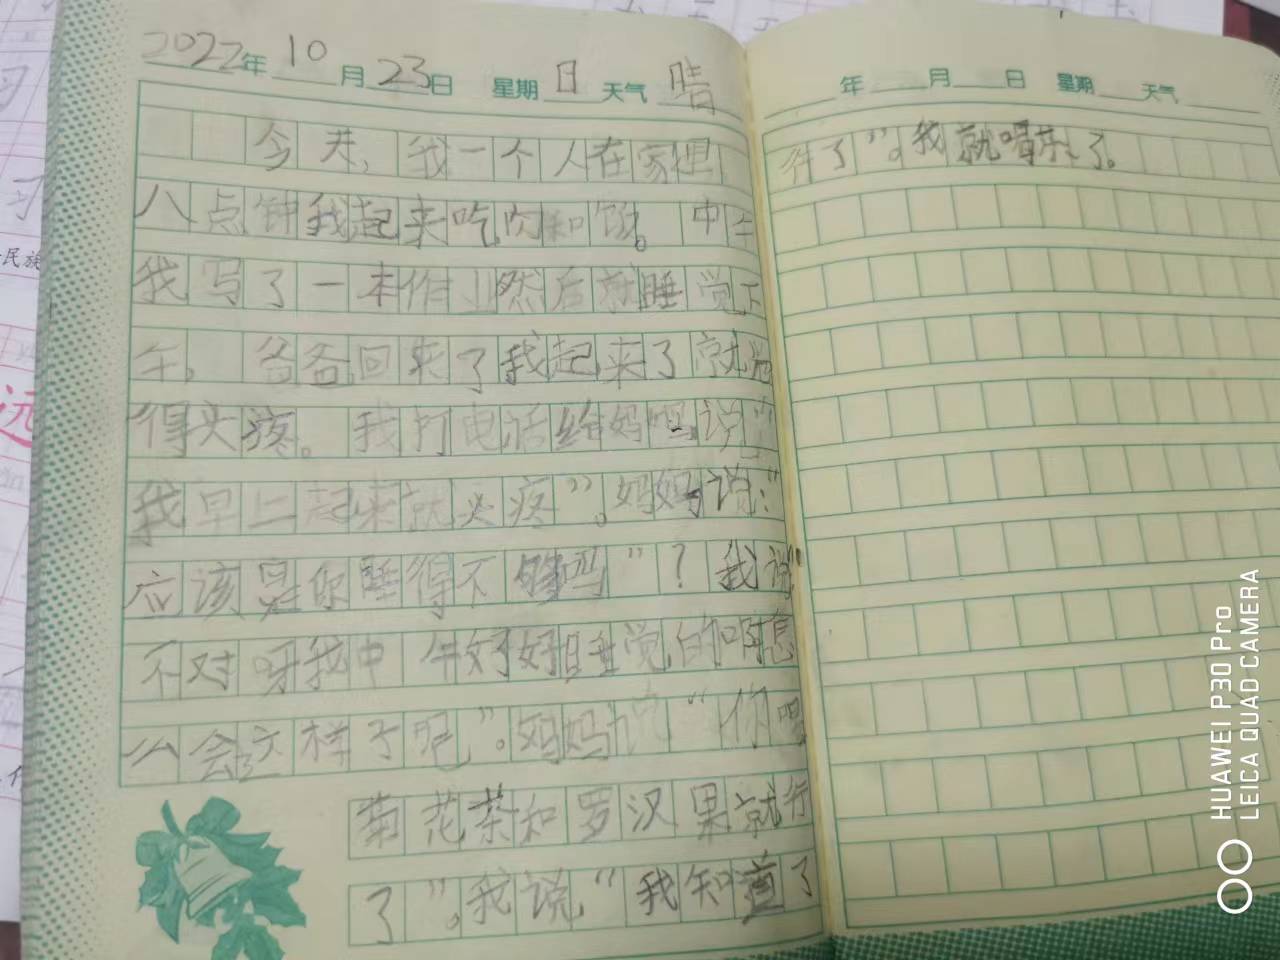 2022年10月23日 星期日 天气晴
今天，我一个人在家里
八点钟我起来吃肉和饭。中午
我写了一本作业然后就睡觉下
午，爸爸回来了我起来了就觉
得头疼。我打电话给妈妈说“
我早上起来就头疼”。妈妈说：“
应该是你睡得不够吗”？我说“
不对呀我中午好好睡觉的啊怎
么会这样子呢”。妈妈说“你喝
菊花茶和罗汉果就行
了”。我说“我知道了
年 月 日 星期 天气
”。我就喝茶了。
民族
HUAWEI P30 Pro
LEICA QUAD CAMERA